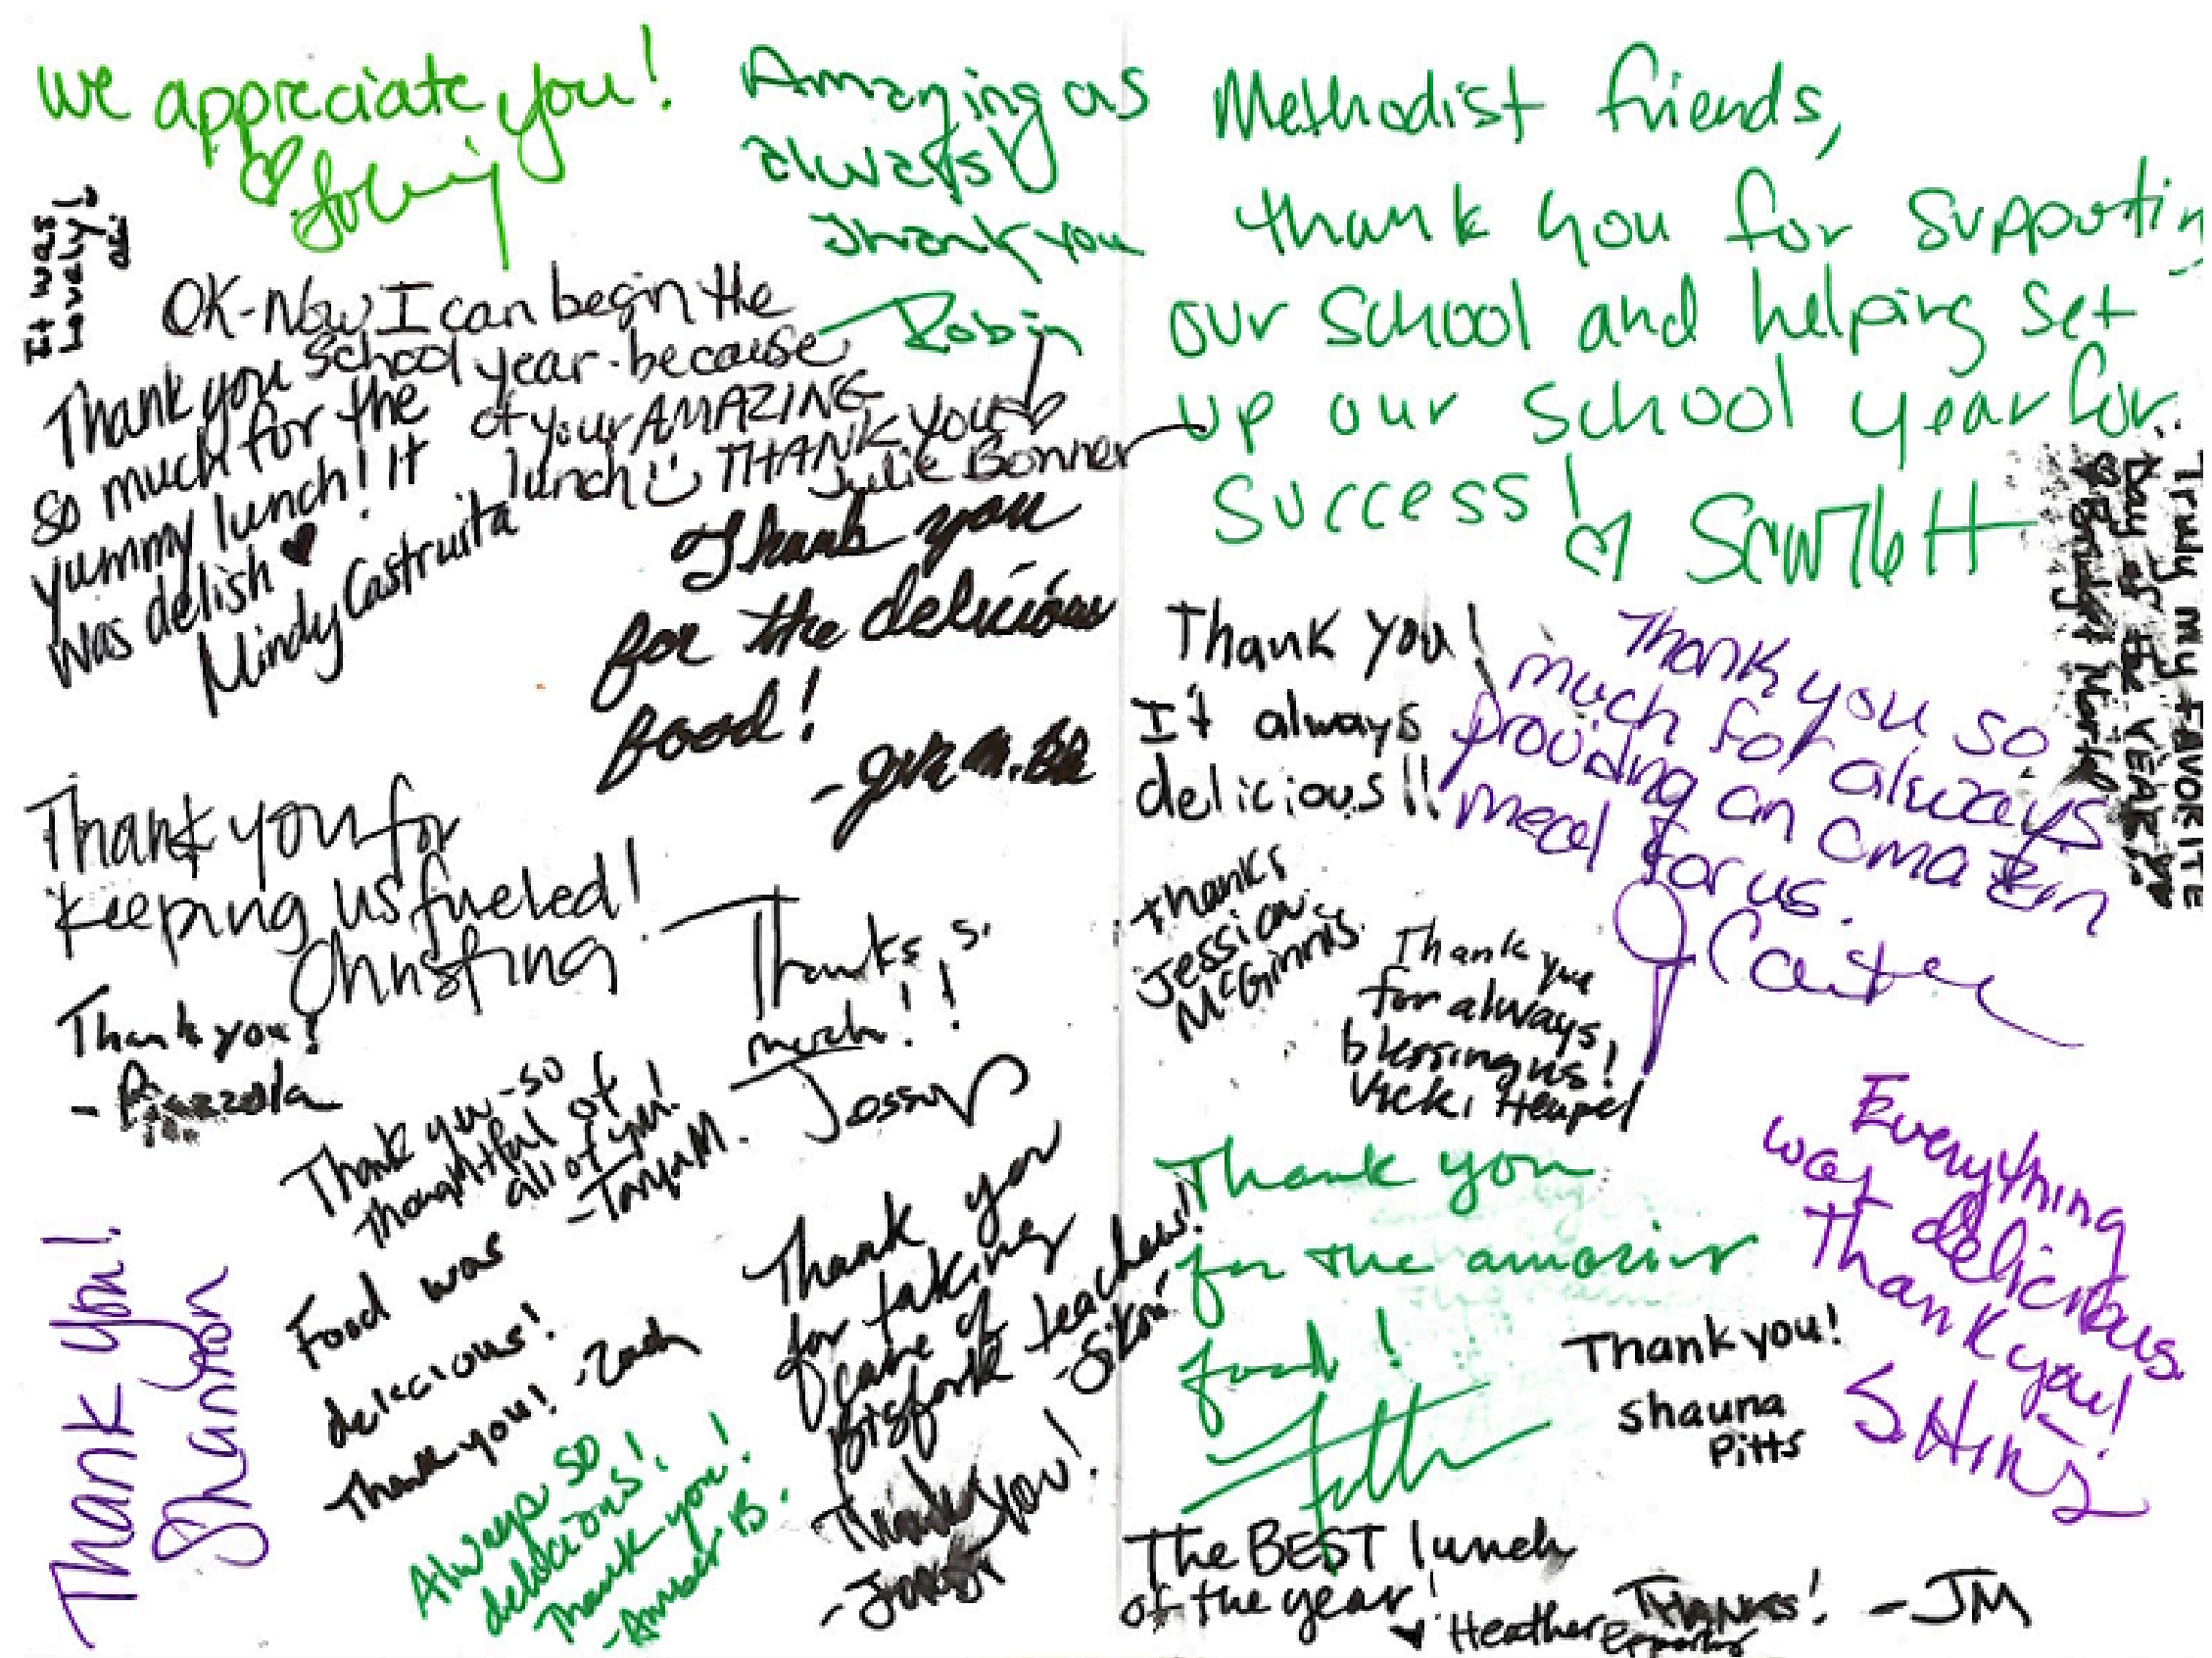 We appreciate you!
It was
Lovely!
Amazing as
always
Thank you
Robin
OK-Now I can begin the
School year-because
of your AMAZING
lunch THANK YOU
Julie Bonner
Thank you
so much for the
yummy lunch! It
was delish
Mindy Castruita
Thank you
for the delicious
food!
Thank you for
keeping us fueled!
Christina
Thank you!
Thanks so
much!!
Thank you-so
thoughtful of
all of you!
-Tanya M.
Thank you!
Shannon
Food was
delicious!
Thank you! -Zach
Always so
delicious!
Thank you!
-Amber B.
Thank you
for taking
care of
Bigfork teachers!
Thank you!
Methodist friends,
thank you for supportin
our school and helping set
up our school year for
success!
Truly my FAVORITE
Day of the YEAR
Thank you!
It always
delicious!!
Thanks
Jessica
McGinnis
Thank you so
much for always
providing an amazin
meal for us.
J Carter
Thank you
for always
blessing us!
Vicki Heupel
Thank you
for the amazing
food!
Everything
was delicious.
Thank you!
S. Hins
Thank you!
Shauna
Pitts
The BEST lunch
of the year!
Heather
Thanks! -JM